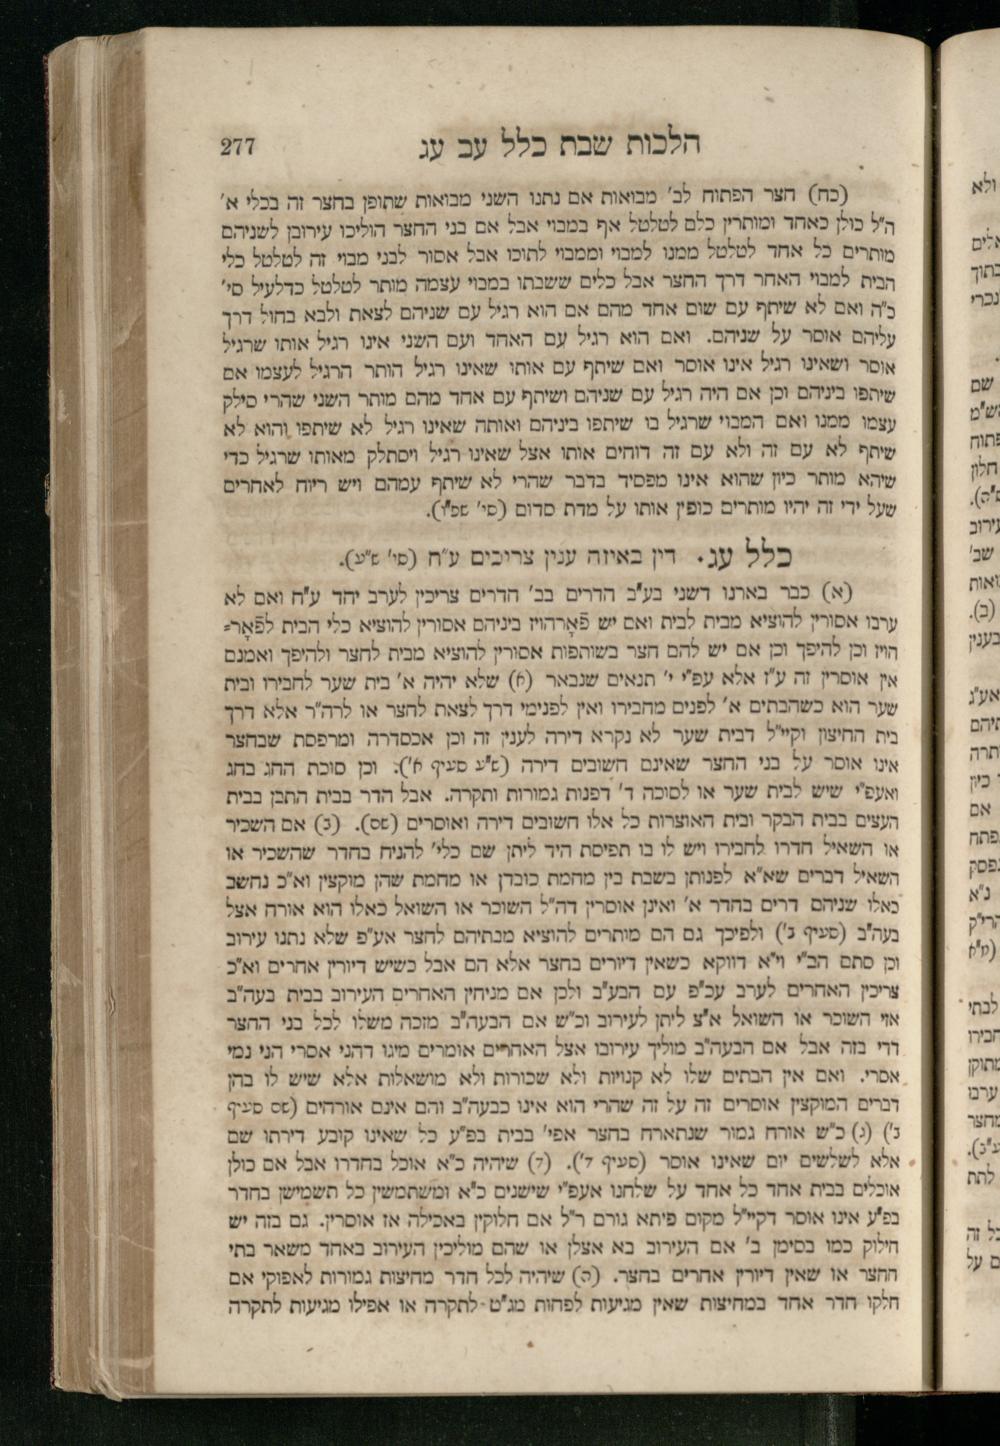 הלכות שבת כלל עב עג 277
(כח) חצר הפתוח לב' מבואות אם נתנו השני מבואות שתופן בחצר זה בכלי א'
ה"ל כולן כאחד ומותרין כלם לטלטל אף במבוי אבל אם בני החצר הוליכו עירובן לשניהם
מותרים כל אחד לטלטל ממנו למבוי וממבוי לתוכו אבל אסור לבני מבוי זה לטלטל כלי
הבית למבוי האחר דרך החצר אבל כלים ששבתו במבוי עצמה מותר לטלטל כדלעיל סי'
כ"ה ואם לא שיתף עם שום אחד מהם אם הוא רגיל עם שניהם לצאת ולבא בחול דרך
עליהם אוסר על שניהם. ואם הוא רגיל עם האחד ועם השני אינו רגיל אותו שרגיל
אוסר ושאינו רגיל אינו אוסר ואם שיתף עם אותו שאינו רגיל הותר הרגיל לעצמו אם
שיתפו ביניהם וכן אם היה רגיל עם שניהם ושיתף עם אחד מהם מותר השני שהרי סילק
עצמו ממנו ואם המבוי שרגיל בו שיתפו ביניהם ואותה שאינו רגיל לא שיתפו והוא לא
שיתף לא עם זה ולא עם זה דוחים אותו אצל שאינו רגיל ויסתלק מאותו שרגיל כדי
שיהא מותר כיון שהוא אינו מפסיד בדבר שהרי לא שיתף עמהם ויש ריוח לאחרים
שעל ידי זה יהיו מותרים כופין אותו על מדת סדום (סי' שפ"ו).
כלל עג. דין באיזה ענין צריכים ע"ח (סי' ש"ע).
(א) כבר בארנו דשני בע"ב הדרים בב' חדרים צריכין לערב יחד ע"ח ואם לא
ערבו אסורין להוציא מבית לבית ואם יש פֿאָרהויז ביניהם אסורין להוציא כלי הבית לפֿאָר=
הויז וכן להיפך וכן אם יש להם חצר בשותפות אסורין להוציא מבית לחצר ולהיפך ואמנם
אין אוסרין זה ע"ז אלא עפ"י י' תנאים שנבאר (א) שלא יהיה א' בית שער לחבירו ובית
שער הוא כשהבתים א' לפנים מחבירו ואין לפנימי דרך לצאת לחצר או לרה"ר אלא דרך
בית החיצון וקיי"ל דבית שער לא נקרא דירה לענין זה וכן אכסדרה ומרפסת שבחצר
אינו אוסר על בני החצר שאינם חשובים דירה (ש"ע סעיף א'): וכן סוכת החג בחג
ואעפ"י שיש לבית שער או לסוכה ד' דפנות גמורות ותקרה. אבל הדר בבית התבן בבית
העצים בבית הבקר ובית האוצרות כל אלו חשובים דירה ואוסרים (שם). (ב) אם השכיר
או השאיל חדרו לחבירו ויש לו בו תפיסת היד ליתן שם כלי' להניח בחדר שהשכיר או
השאיל דברים שא"א לפנותן בשבת בין מחמת כובדן או מחמת שהן מוקצין וא"כ נחשב
כאלו שניהם דרים בחדר א' ואינן אוסרין דה"ל השוכר או השואל כאלו הוא אורח אצל
בעה"ב (סעיף ב') ולפיכך גם הם מותרים להוציא מבתיהם לחצר אע"פ שלא נתנו עירוב
וכן סתם הב"י וי"א דווקא כשאין דיורים בחצר אלא הם אבל כשיש דיורין אחרים וא"כ
צריכין האחרים לערב עכ"פ עם הבע"ב ולכן אם מניחין האחרים העירוב בבית בעה"ב
אזי השוכר או השואל א"צ ליתן לעירוב וכ"ש אם הבעה"ב מזכה משלו לכל בני החצר
דדי בזה אבל אם הבעה"ב מוליך עירובו אצל האחרים אומרים מיגו דהני אסרי הני נמי
אסרי. ואם אין הבתים שלו לא קנויות ולא שכורות ולא מושאלות אלא שיש לו בהן
דברים המוקצין אוסרים זה על זה שהרי הוא אינו כבעה"ב והם אינם אורחים (שם סעיף
ב') (ג) כ"ש אורח גמור שנתארח בחצר אפי' בבית בפ"ע כל שאינו קובע דירתו שם
אלא לשלשים יום שאינו אוסר (סעיף ד'). (ד) שיהיה כ"א אוכל בחדרו אבל אם כולן
אוכלים בבית אחד כל אחד על שלחנו אעפ"י שישנים כ"א ומשתמשין כל תשמישן בחדר
בפ"ע אינו אוסר דקיי"ל מקום פיתא גורם ר"ל אם חלוקין באכילה אז אוסרין. גם בזה יש
חילוק כמו בסימן ב' אם העירוב בא אצלן או שהם מוליכין העירוב באחד משאר בתי
החצר או שאין דיורין אחרים בחצר. (ה) שיהיה לכל חדר מחיצות גמורות לאפוקי אם
חלקו חדר אחד במחיצות שאין מגיעות לפחות מג"ט לתקרה או אפילו מגיעות לתקרה